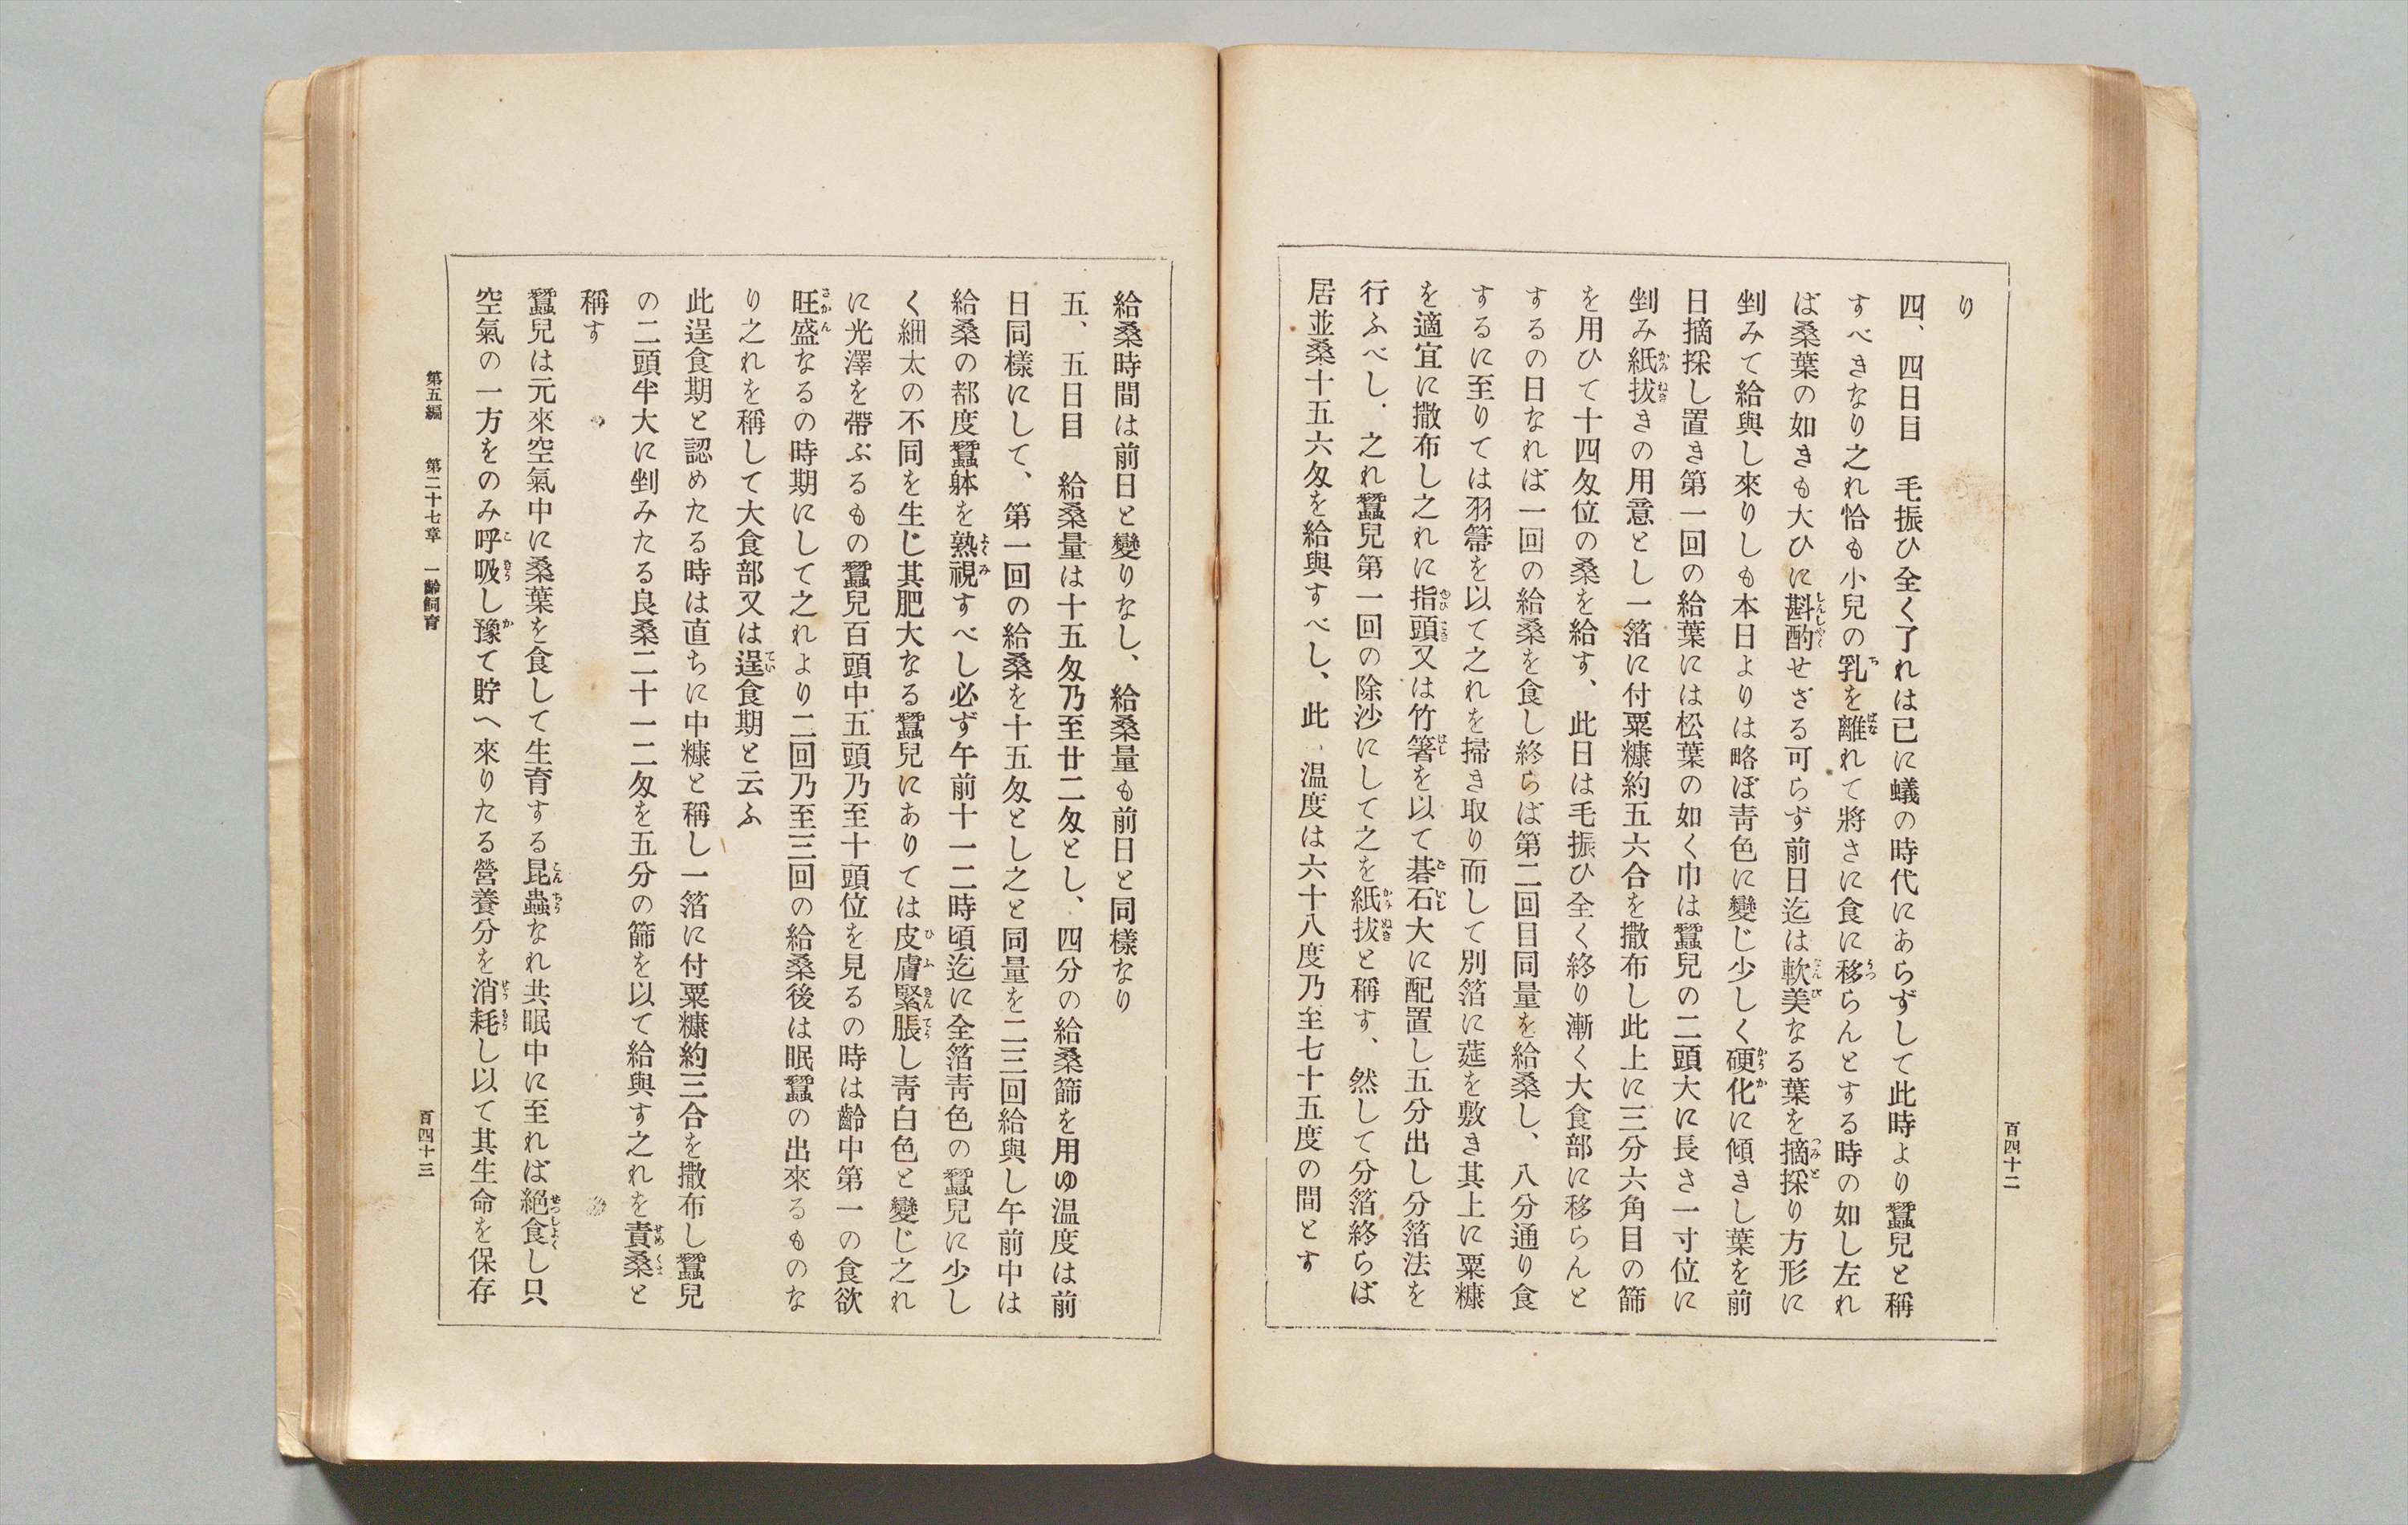 り
四、四日目　毛振ひ全く了れは已に蟻の時代にあらずして此時より蠶兒と稱
すべきなり之れ恰も小兒の乳を離れて將さに食に移らんとする時の如し左れ
ば桑葉の如きも大ひに斟酌せざる可らず前日迄は軟美なる葉を摘採り方形に
剉みて給與し來りしも本日よりは略ぼ靑色に變じ少しく硬化に傾きし葉を前
日摘採し置き第一回の給葉には松葉の如く巾は蠶兒の二頭大に長さ一寸位に
剉み紙拔きの用意とし一箔に付粟糠約五六合を撒布し此上に三分六角目の篩
を用ひて十四匁位の桑を給す、此日は毛振ひ全く終り漸く大食部に移らんと
するの日なれば一回の給桑を食し終らば第二回目同量を給桑し、八分通り食
するに至りては羽箒を以て之れを掃き取り而して別箔に莚を敷き其上に粟糠
を適宜に撒布し之れに指頭又は竹箸を以て碁石大に配置し五分出し分箔法を
行ふべし、之れ蠶兒第一回の除沙にして之を紙拔と稱す、然して分箔終らば
居並桑十五六匁を給與すべし、此日温度は六十八度乃至七十五度の間とす
百四十二
給桑時間は前日と變りなし、給桑量も前日と同樣なり
五、五日目　給桑量は十五匁乃至廿二匁とし、四分の給桑篩を用ゆ温度は前
日同樣にして、第一回の給桑を十五匁とし之と同量を二三回給與し午前中は
給桑の都度蠶躰を熟視すべし必ず午前十一二時頃迄に全箔靑色の蠶兒に少し
く細太の不同を生じ其肥大なる蠶兒にありては皮膚緊脹し靑白色と變じ之れ
に光澤を帶ぶるもの蠶兒百頭中五頭乃至十頭位を見るの時は齡中第一の食欲
旺盛なるの時期にして之れより二回乃至三回の給桑後は眠蠶の出來るものな
り之れを稱して大食部又は逞食期と云ふ
此逞食期と認めたる時は直ちに中糠と稱し一箔に付粟糠約三合を撒布し蠶兒
の二頭半大に剉みたる良桑二十一二匁を五分の篩を以て給與す之れを責桑と
稱す
蠶兒は元來空氣中に桑葉を食して生育する昆蟲なれ共眠中に至れば絕食し只
空氣の一方をのみ呼吸し豫て貯へ來りたる營養分を消耗し以て其生命を保存
第五編　第二十七章　一齡飼育
百四十三